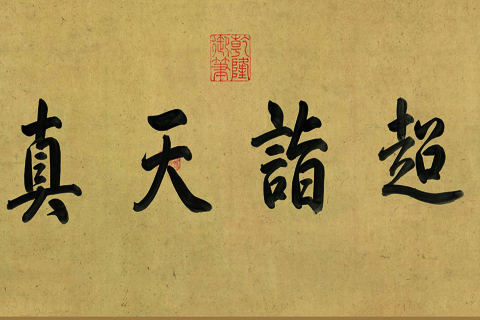 乾隆御筆
超詣天真